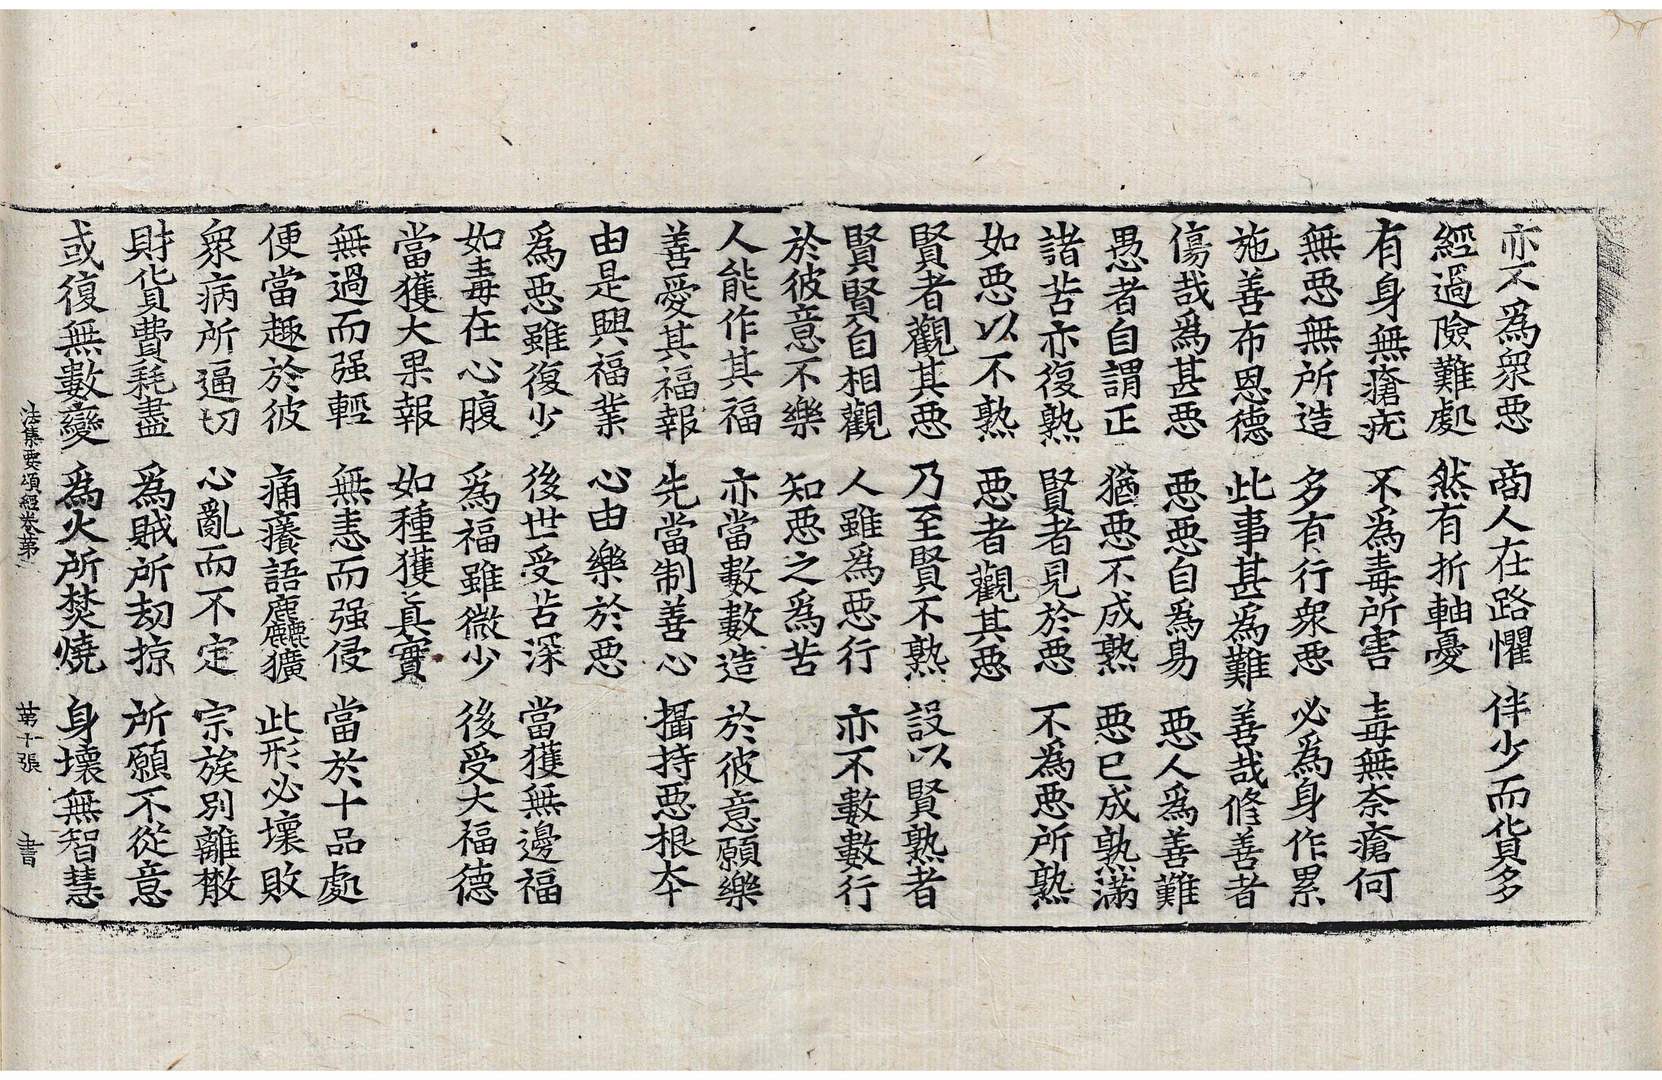 亦不爲衆惡 商人在路懼 伴少而貨多
經過險難處 然有折軸憂
有身無瘡疣 不爲毒所害 毒無奈瘡何
無惡無所造 多有行衆惡 必爲身作累
施善布恩德 此事甚爲難 善哉修善者
傷哉爲甚惡 惡惡自爲易 惡人爲善難
愚者自謂正 猶惡不成熟 惡已成熟滿
諸苦亦復熟 賢者見於惡 不為惡所熟
如惡以不熟 惡者觀其惡
賢者觀其惡 乃至賢不熟 設以賢熟者
賢賢自相觀 人雖爲惡行 亦不數數行
於彼意不樂 知惡之爲苦
人能作其福 亦當數數造 於彼意願樂
善愛其福報 先當制善心 攝持惡根本
由是興福業 心由樂於惡
爲惡雖復少 後世受苦深 當獲無邊福
如毒在心腹 爲福雖微少 後受大福德
當獲大果報 如種獲真實
無過而强輕 無恚而强侵 當於十品處
便當趣於彼 痛癢語麁麤獷 此形必壞敗
衆病所逼切 心亂而不定 宗族別離散
財貨費耗盡 爲賊所劫掠 所願不從意
或復無數變 爲火所焚燒 身壞無智慧
法集要頌經卷第 第十張 書